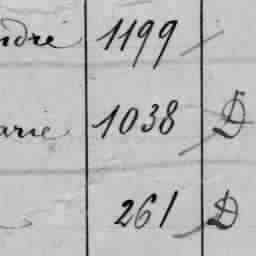 ndre 1199
arie 1038 D
261 D